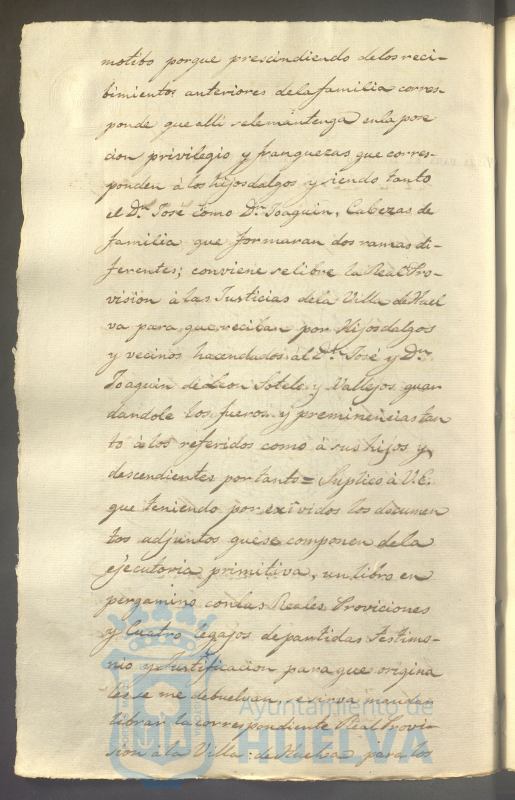 motibo porque prescindiendo delosreci-
bimientos anteriores delafamilia corres-
ponde que alli selemantenga enla pose
cion privilegio y franquezas que corres-
ponden á los hijosdalgos y siendo tanto
el Dn. José como Dn. Joaquin, Cabezas de
familia que formaran dos ramas di-
ferentes; conviene selibre la Real Pro-
vision á las Justicias dela Villa de Huel
va para que reciban por Hijosdalgos
y vecinos hacendados al Dn. José y Dn.
Joaquin de Leon Sotelo y Vallejos guar
dandole los fueros y preminencias tan
to á los referidos como á sus hijos y
descendientes por tanto = Suplico á V.E.
que teniendo por exividos los documen
tos adjuntos que se componen dela
ejecutoria primitiva, un libro en
pergamino con las Reales Proviciones
y Cuatro legajos de partidas Testimo-
nio y Justificacion para que origina
les se me debuelvan, se sirva mandar
librar la correspondiente Real Provi-
sion á la Villa de Huelva para los
Ayuntamiento de
HUELVA